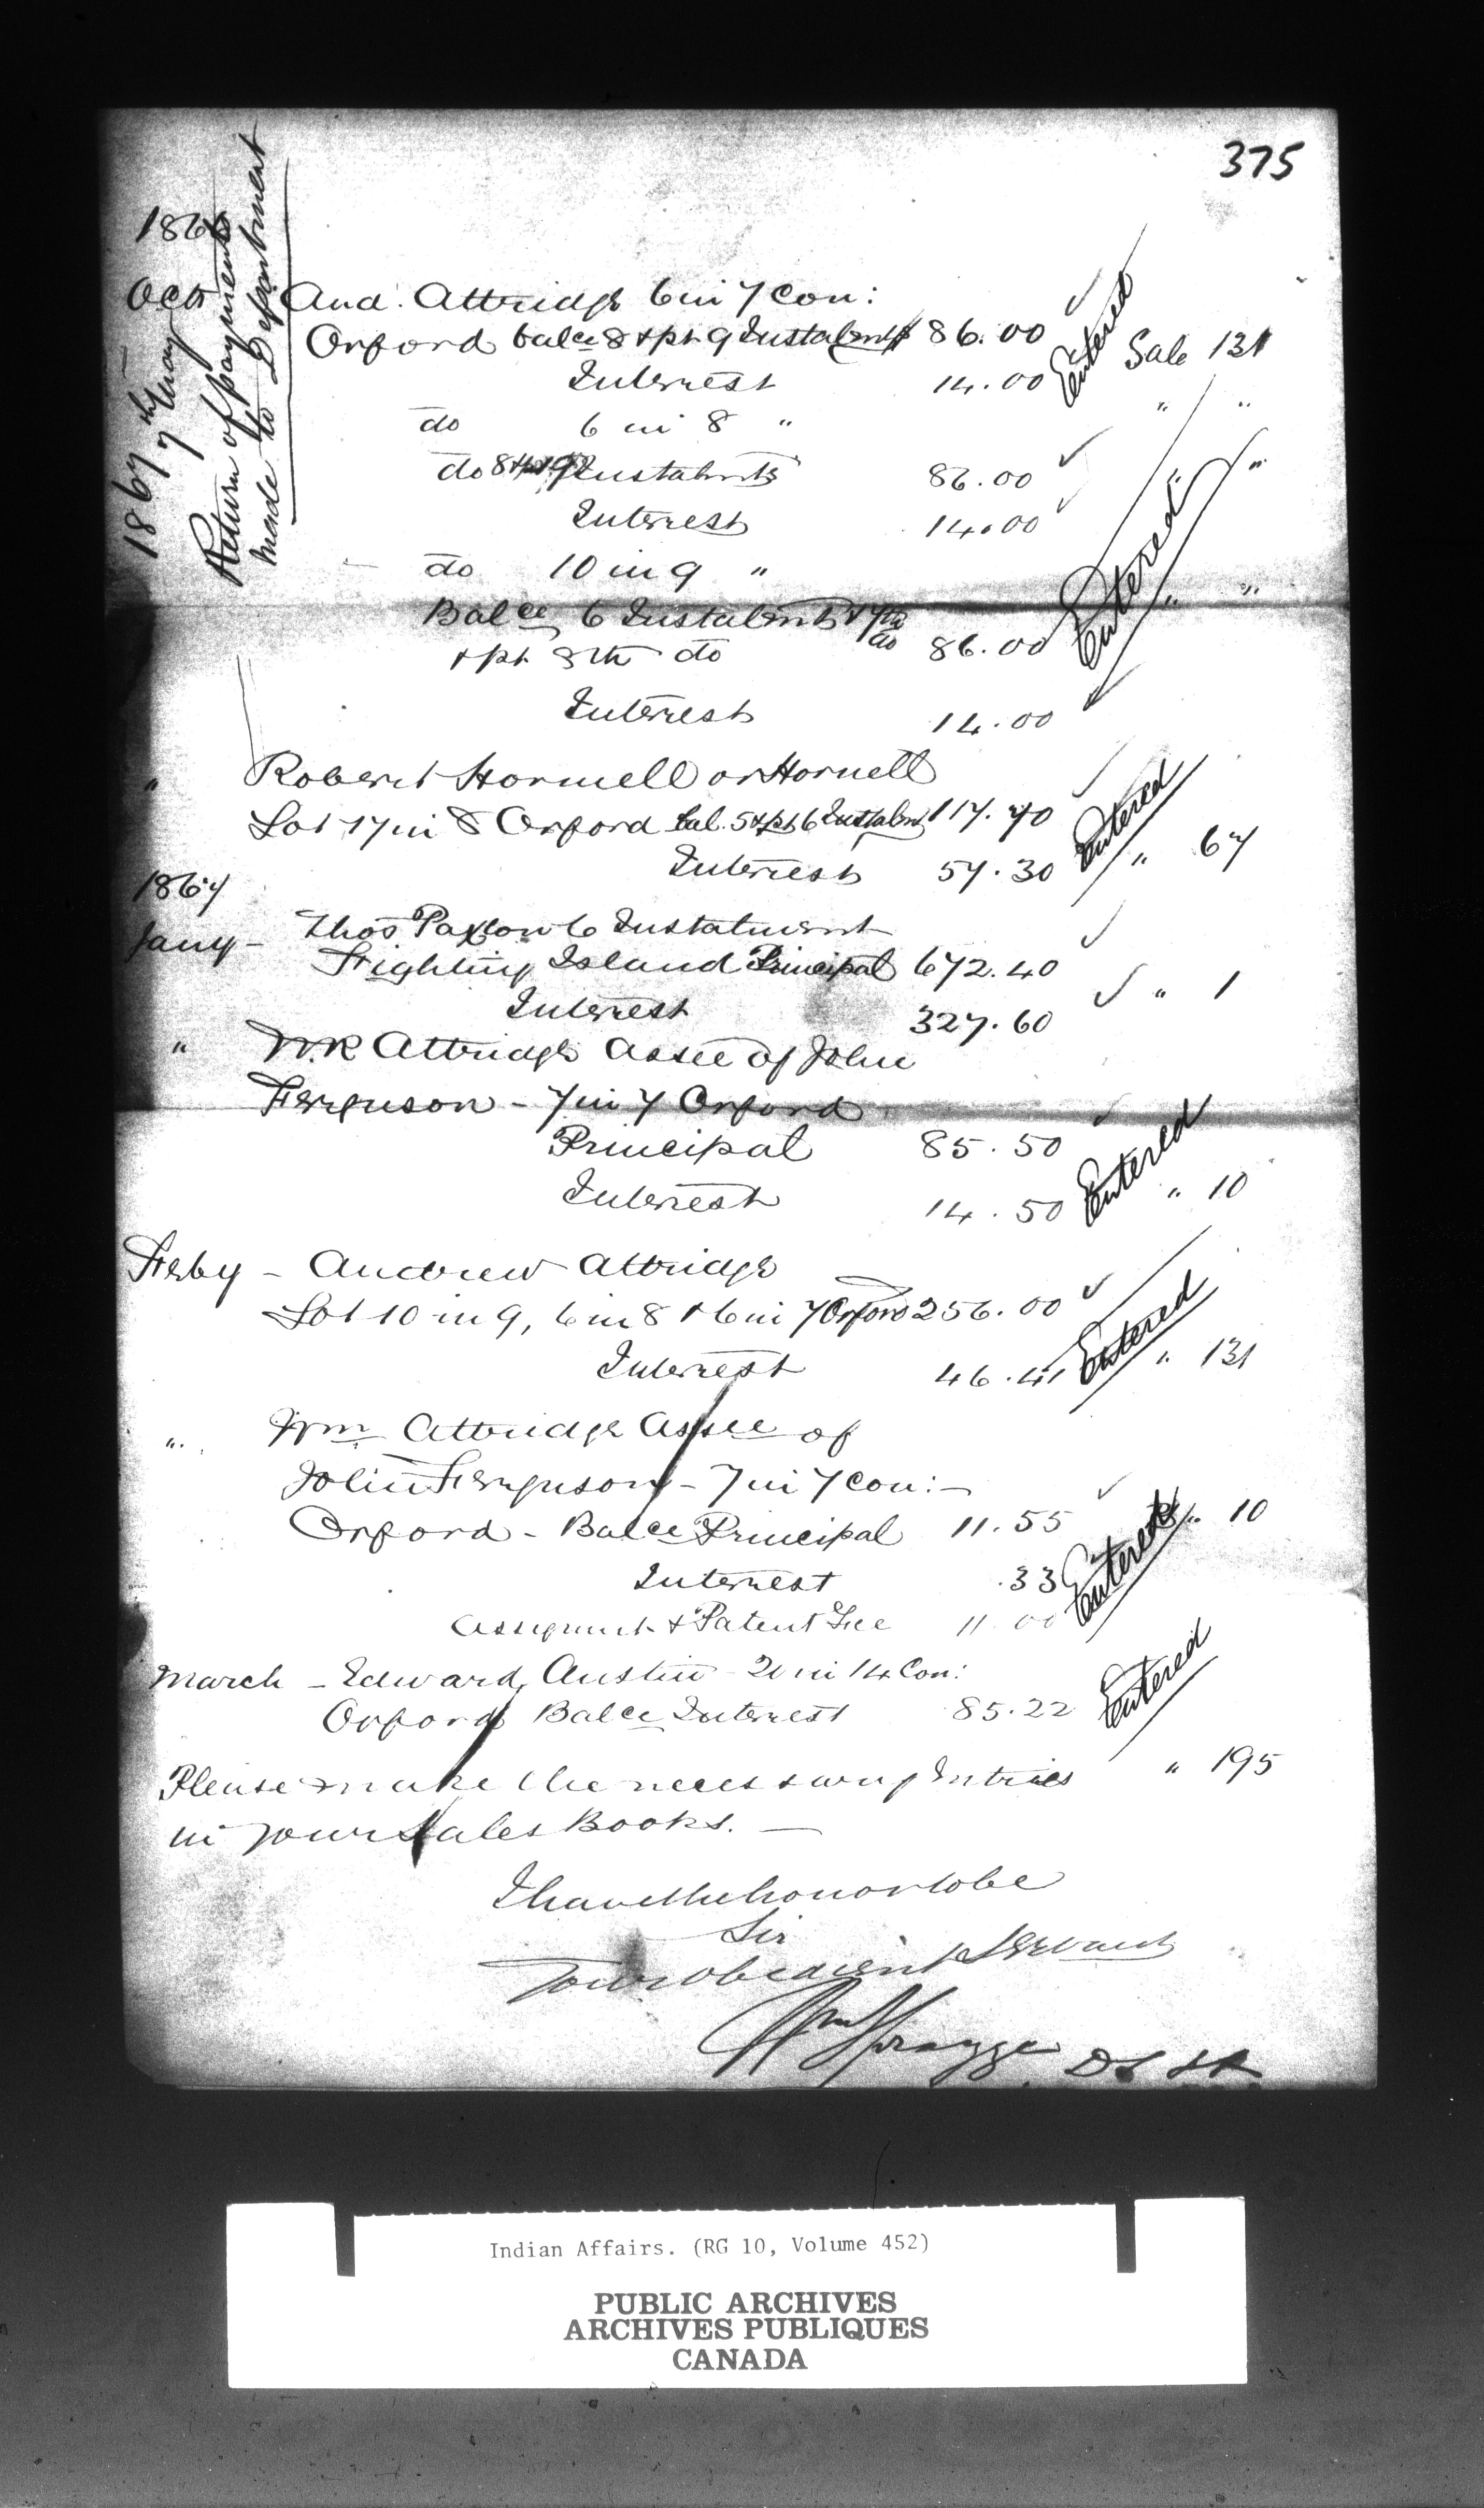 375
1867 7th May
Return of payments
made to Department
1866
Oct And. Attridge 6 in 7 Con:
Orford balce 8 & pt 9 Instalmts 86.00 Entered Sale 131
Interest 14.00
do 6 in 8 " " "
do 8 & pt 9 Instalmts 86.00 " "
Interest 14.00
do 10 in 9 "
Balce 6 Instalmt & 7th do 86.00 Entered " "
& pt 8th do
Interest 14.00
" Robert Hormell or Hornell
Lot 17 in 8 Orford bal. 5 & pt 6 Instalmt 117.70 Entered
Interest 57.30 " 67
1867
Jany - Thos Paxton 6 Instalment
Fighting Island Principal 672.40
Interest 327.60 " 1
" W.R Attridge Assee of John
Ferguson - 7 in 7 Orford
Principal 85.50 Entered
Interest 14.50 " 10
Feby - Andrew Attridge
Lot 10 in 9, 6 in 8 & 6 in 7 Orford 256.00 Entered
Interest 46.41 " 131
" Wm Attridge Assee of
John Ferguson - 7 in 7 Con: -
Orford - Balce Principal 11.55 Entered " 10
Interest .33
Assignmt & Patent Fee 11.00
March - Edward Austin - 20 in 14 Con:
Orford Balce Interest 85.22 Entered
Please make the necessary Entries " 195
in your Sales Books. -
I have the honor to be
Sir
Your obedient Servant
Wm Spragge
Indian Affairs. (RG 10, Volume 452)
PUBLIC ARCHIVES
ARCHIVES PUBLIQUES
CANADA